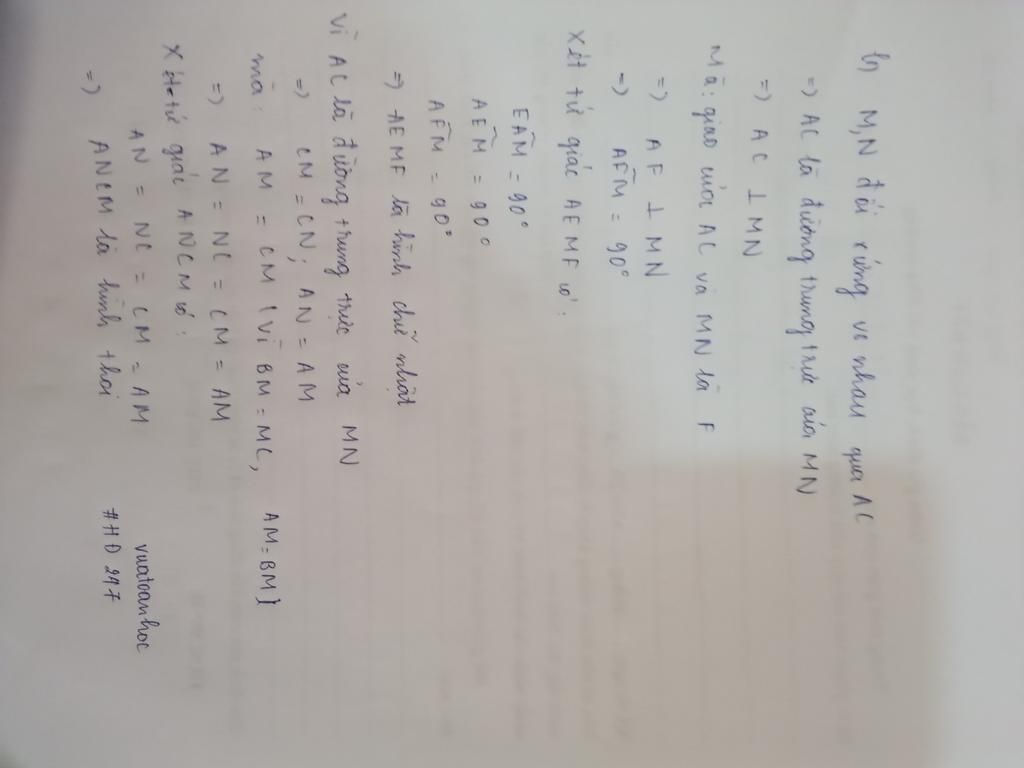 b) M,N đối xứng vs nhau qua AC
=) AC là đường trung trực của MN
=) AC ⊥ MN
Mà: giao của AC và MN là F
=) AF ⊥ MN
=) AF̂M = 90°
Xét tứ giác AEMF có:
EÂM = 90°
AÊM = 90°
AF̂M = 90°
=) AEMF là hình chữ nhật
Vì AC là đường trung trực của MN
=) CM = CN; AN = AM
mà: AM = CM (Vì BM = MC, AM = BM)
=) AN = NC = CM = AM
Xét tứ giác ANCM có:
AN = NC = CM = AM
=) ANCM là hình thoi
vuatoanhoc
#HĐ 247